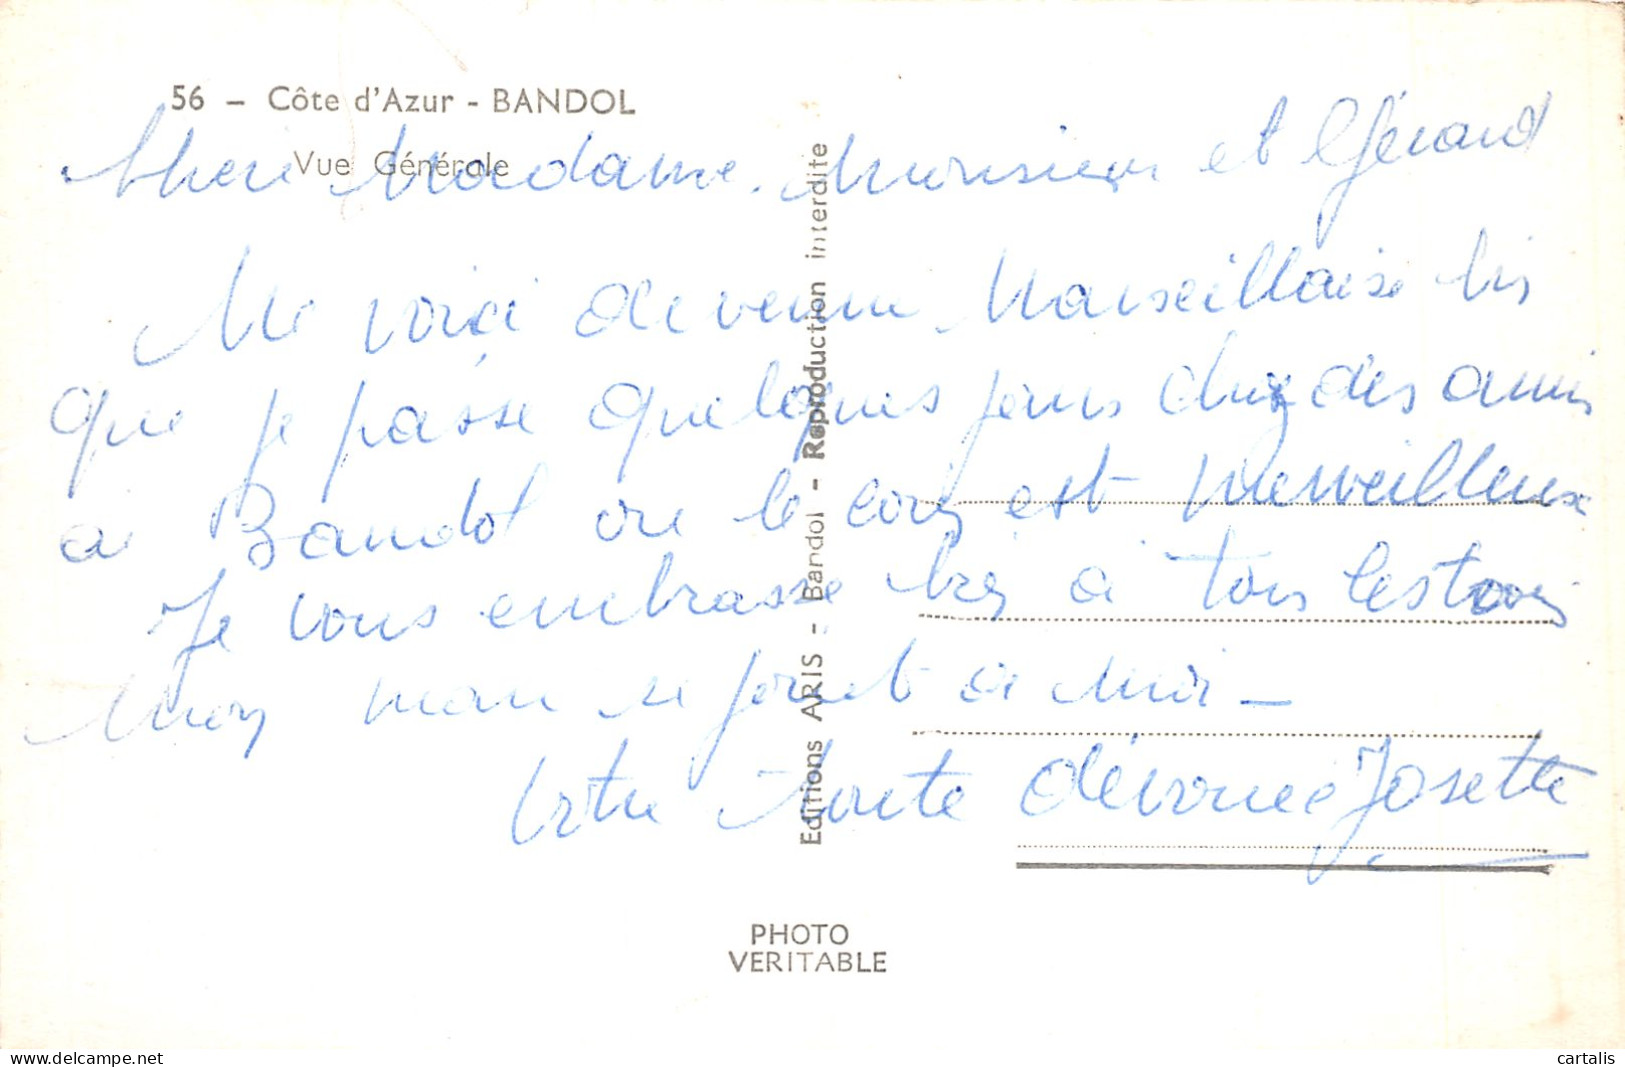 56 – Côte d'Azur - BANDOL
Vue Générale
Chere Madame. Monsieur et Gérard
Me voici devenue Marseillaise
que je passe quelques jours chez des amis
a Bandol ou le coin est merveilleux
Je vous embrasse bien à tous les trois
mon mari se joint a moi –
Votre toute dévouée Josette
Editions ARIS - Bandol - Reproduction interdite
PHOTO
VERITABLE
www.delcampe.net
cartalis